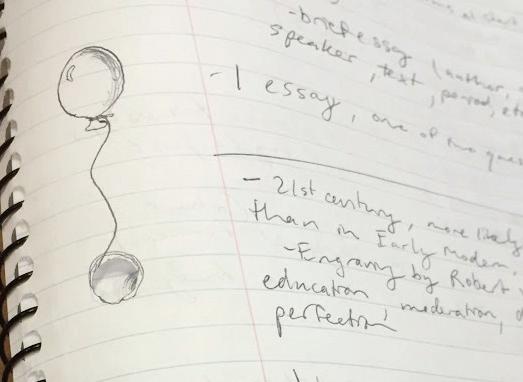 - brief essay (author,
speaker, text, period, etc
- 1 essay, one of two
- 21st century, more likely
than in Early Modern.
- Engraving by Robert
education, moderation,
perfection